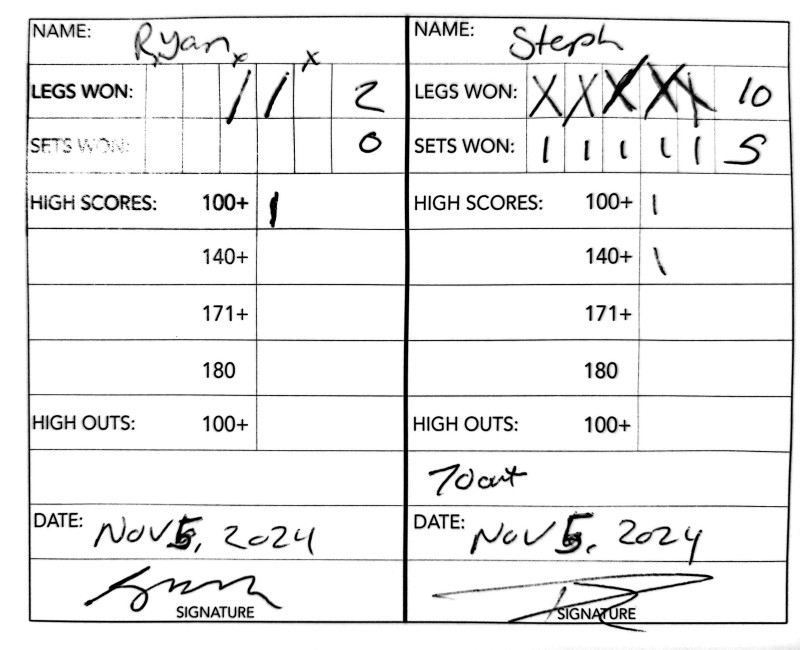 NAME: Ryan
x x
LEGS WON: / / 2
SETS WON: 0
HIGH SCORES: 100+ 1
140+
171+
180
HIGH OUTS: 100+
DATE: NOV 5, 2024
SIGNATURE
NAME: Steph
LEGS WON: X X X X X 10
SETS WON: 1 1 1 1 1 5
HIGH SCORES: 100+ 1
140+ 1
171+
180
HIGH OUTS: 100+
70 out
DATE: NOV 5, 2024
SIGNATURE